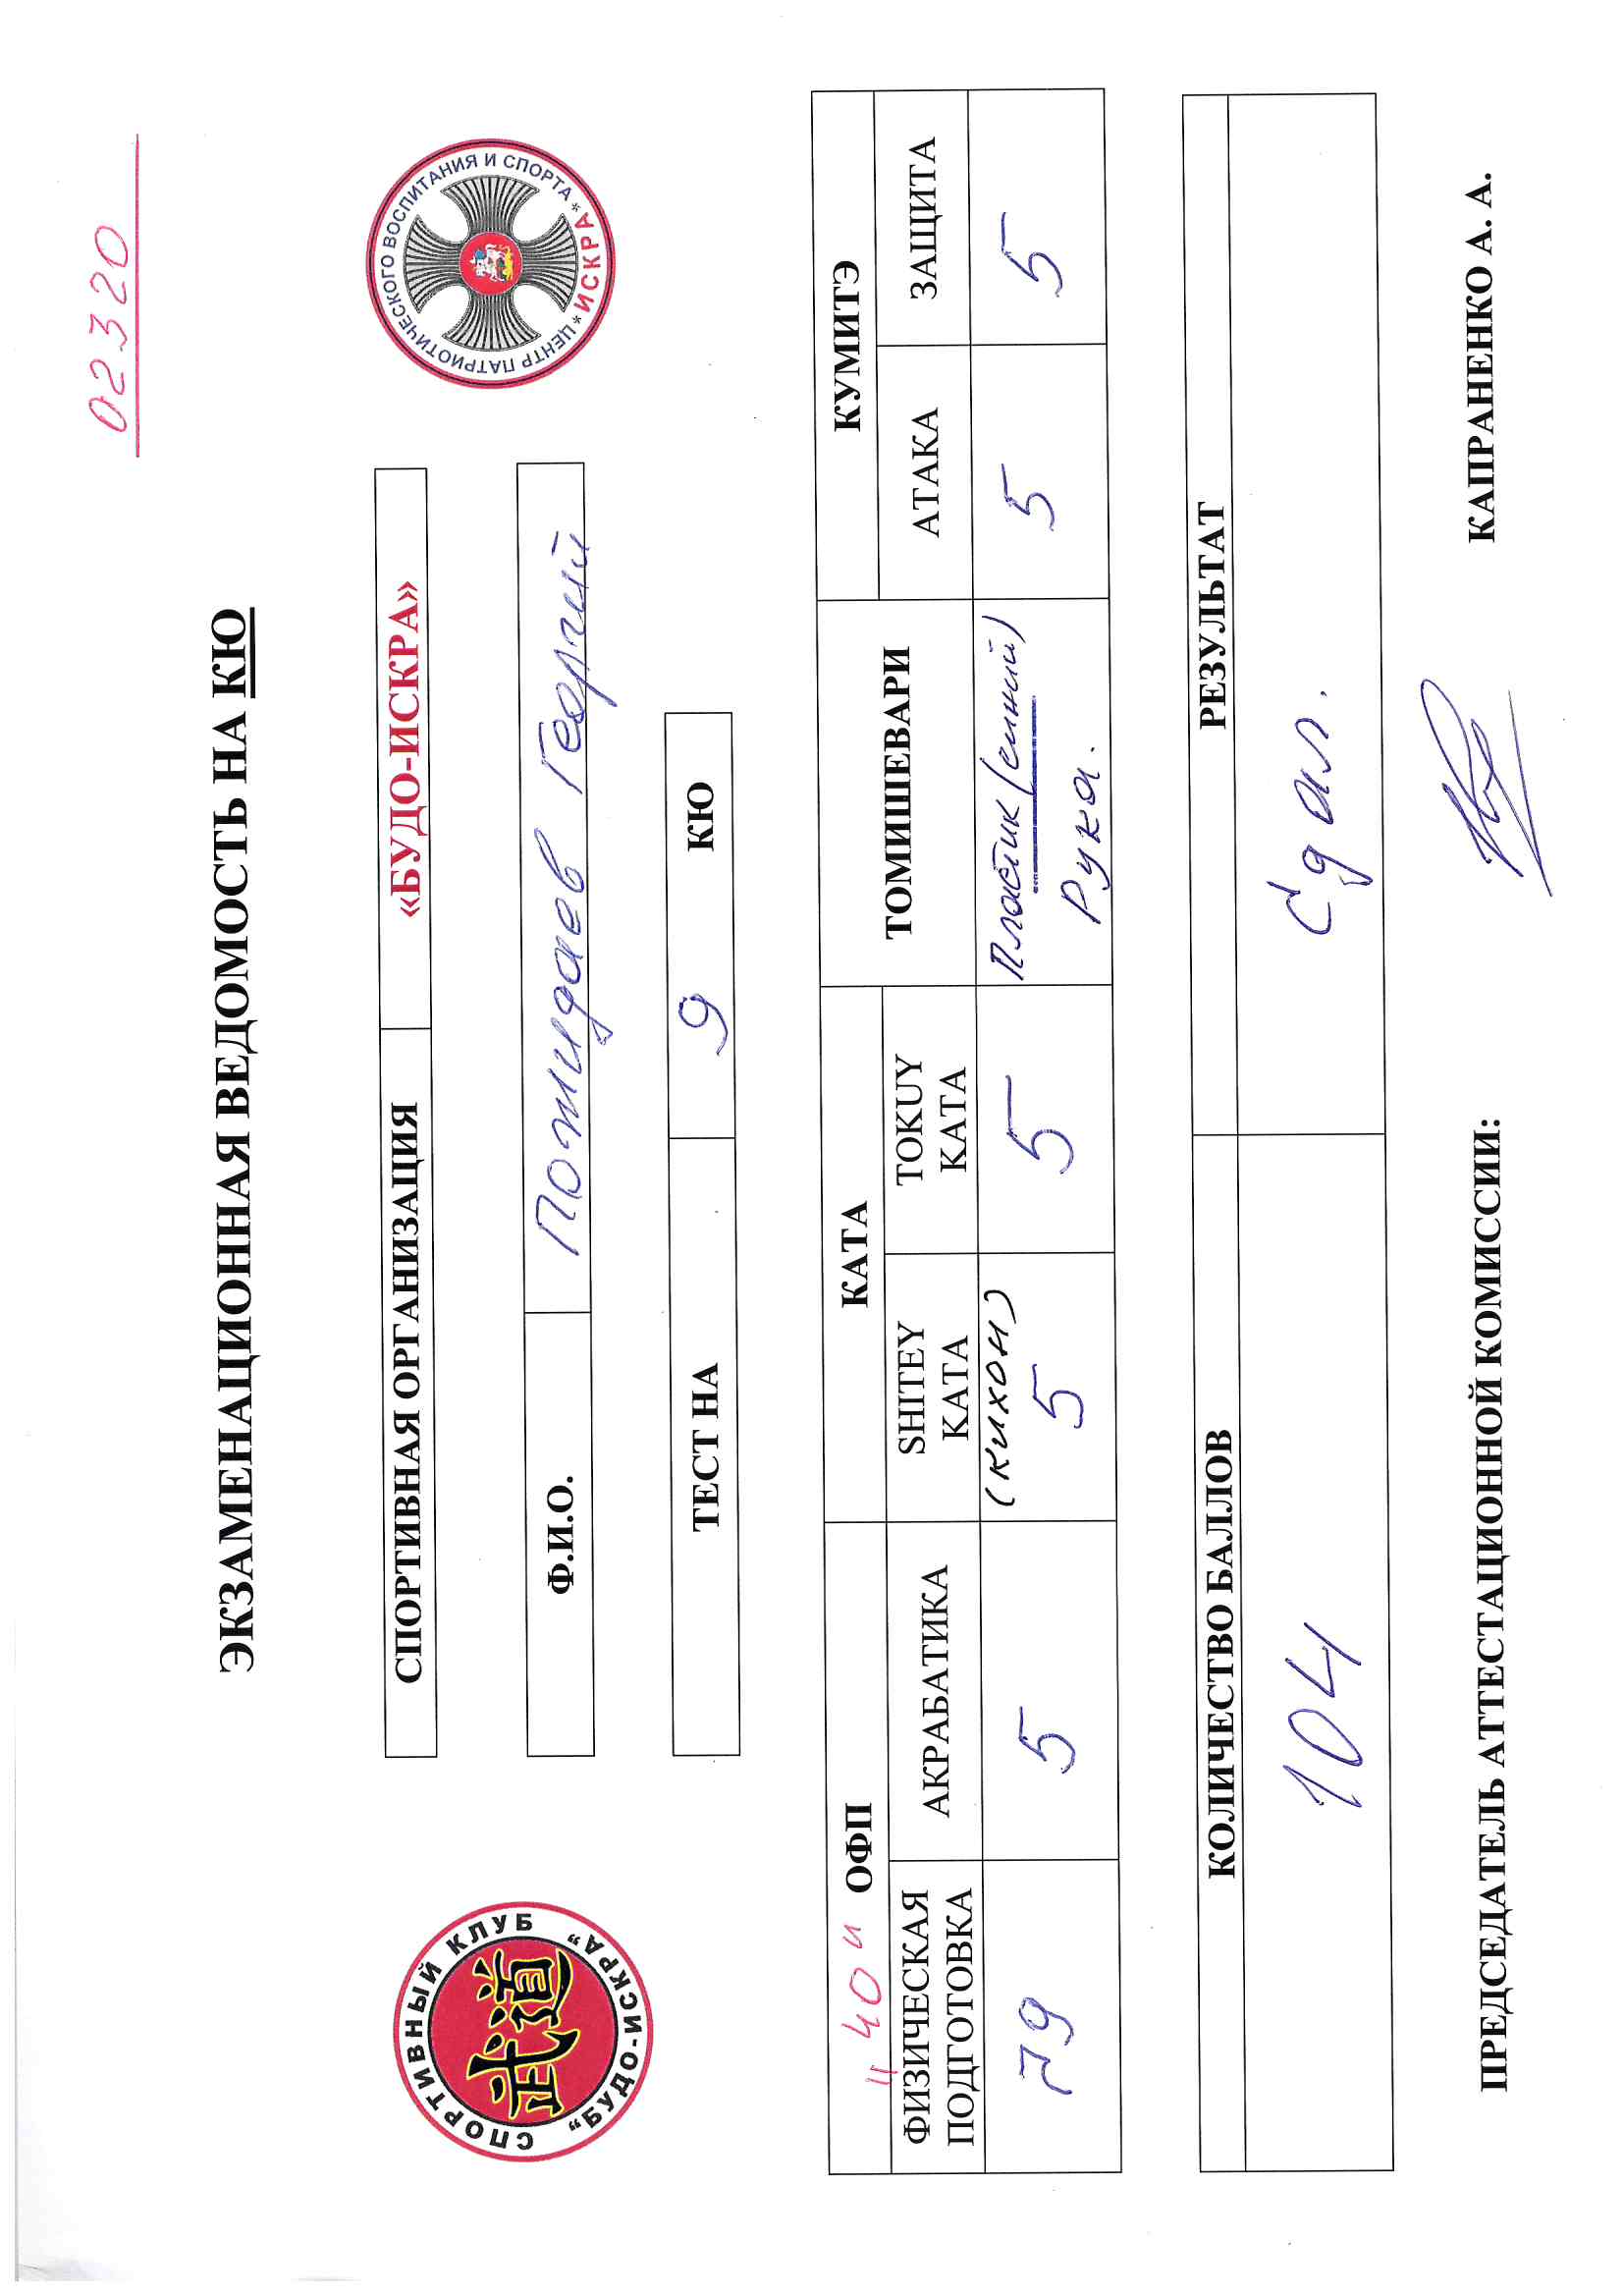 02320
ЭКЗАМЕНАЦИОННАЯ ВЕДОМОСТЬ НА КЮ
СПОРТИВНЫЙ КЛУБ
"БУДО-ИСКРА"
武道
СПОРТИВНАЯ ОРГАНИЗАЦИЯ «БУДО-ИСКРА»
ЦЕНТР ПАТРИОТИЧЕСКОГО ВОСПИТАНИЯ И СПОРТА
* ИСКРА *
Ф.И.О. Потидаев Георгий
ТЕСТ НА 9 КЮ
"40" ОФП КАТА ТОМИШЕВАРИ КУМИТЭ
ФИЗИЧЕСКАЯ ПОДГОТОВКА АКРАБАТИКА SHITEY КАТА TOKUY КАТА АТАКА ЗАЩИТА
79 5 (кихон) 5 5 Пластик (синий) Рука. 5 5
КОЛИЧЕСТВО БАЛЛОВ РЕЗУЛЬТАТ
104 Сдал.
ПРЕДСЕДАТЕЛЬ АТТЕСТАЦИОННОЙ КОМИССИИ: КАПРАНЕНКО А. А.